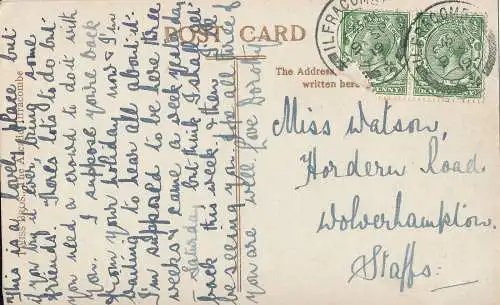 POST CARD
The Address
written here
ILFRACOMBE
ILFRACOMBE
Miss Watson,
Hordern Road
Wolverhampton.
Staffs.
This is a lovely place but
if you try it ever, bring some
friends. There's lots to do but
you need a crowd to do it with
you. I suppose you're back
from your holiday now & I'm
waiting to hear all about it.
I'm supposed to be here three
weeks & came a week yesterday
Saturday but think I shall get
back this week & then
be seeing you. Hope all three of
you are well. Love Dorothy